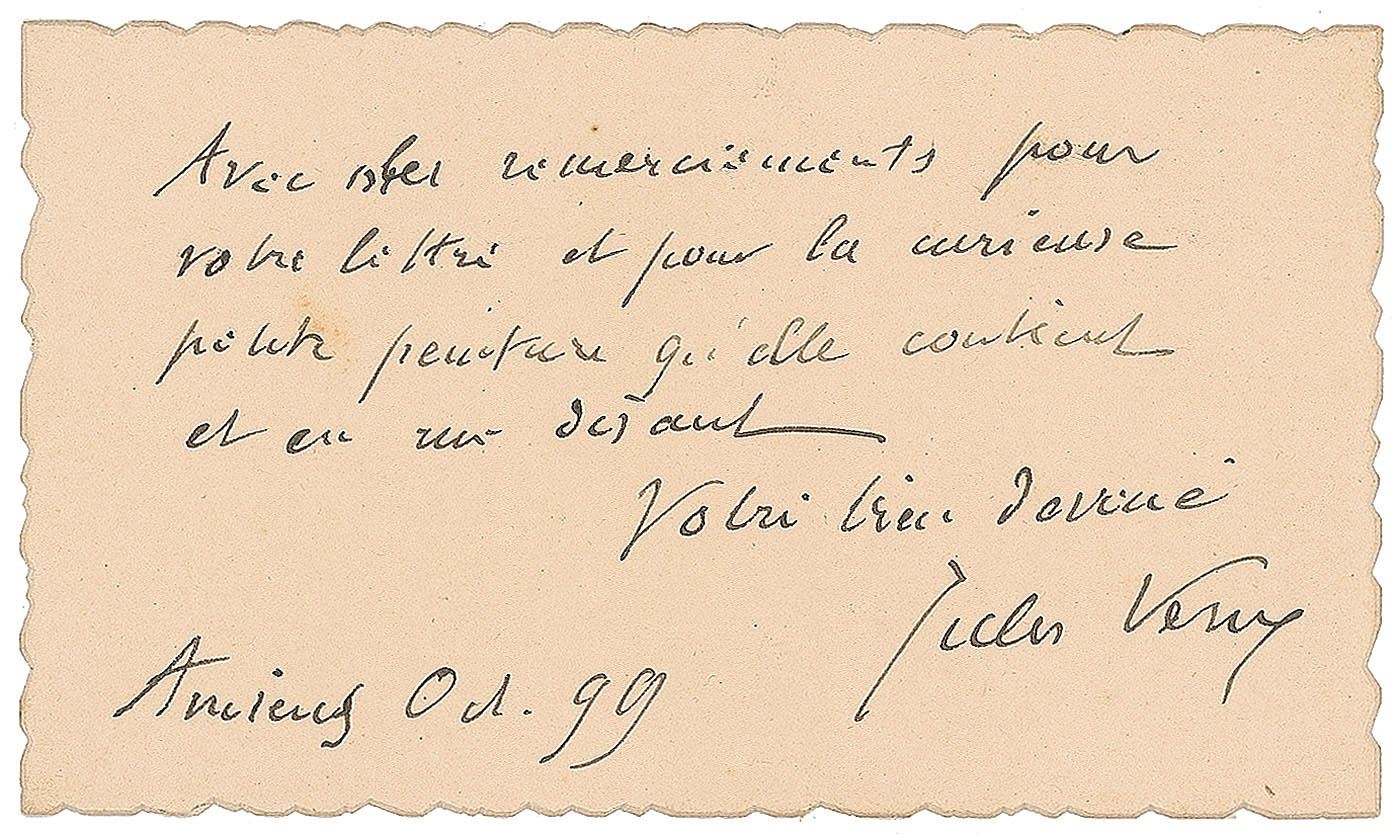 Avec mes remerciements pour
votre lettre et pour la curieuse
petite peinture qu'elle contient
et en me disant
Votre bien dévoué
Jules Verne
Amiens Oct. 99